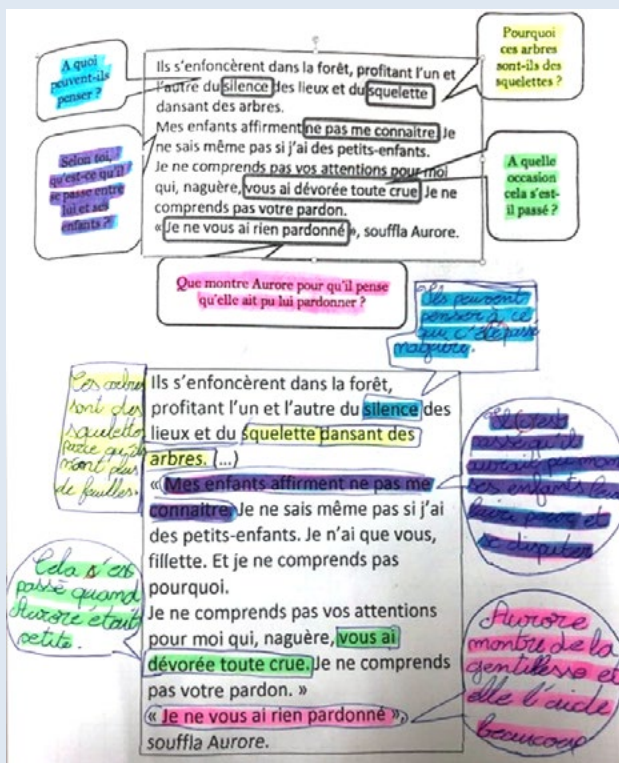 A quoi
peuvent-ils
penser ?
Pourquoi
ces arbres
sont-ils des
squelettes ?
Ils s'enfoncèrent dans la forêt, profitant l'un et
l'autre du silence des lieux et du squelette
dansant des arbres.
Mes enfants affirment ne pas me connaitre. Je
ne sais même pas si j'ai des petits-enfants.
Je ne comprends pas vos attentions pour moi
qui, naguère, vous ai dévorée toute crue. Je ne
comprends pas votre pardon.
« Je ne vous ai rien pardonné », souffla Aurore.
Selon toi,
qu'est-ce qu'il
se passe entre
lui et ses
enfants ?
A quelle
occasion
cela s'est-
il passé ?
Que montre Aurore pour qu'il pense
qu'elle ait pu lui pardonner ?
Ils peuvent
penser à ce
qui c'été passé
naguère.
Ces arbres
sont des
squelettes
parce qu'ils
n'ont plus
de feuilles.
Ils s'enfoncèrent dans la forêt,
profitant l'un et l'autre du silence des
lieux et du squelette dansant des
arbres. (...)
« Mes enfants affirment ne pas me
connaitre. Je ne sais même pas si j'ai
des petits-enfants. Je n'ai que vous,
fillette. Et je ne comprends pas
pourquoi.
Je ne comprends pas vos attentions
pour moi qui, naguère, vous ai
dévorée toute crue. Je ne comprends
pas votre pardon. »
« Je ne vous ai rien pardonné »,
souffla Aurore.
passé qu'il
ses enfants
et
se disputer
Cela s'est
passé quand
Aurore était
petite.
Aurore
montre de la
gentillesse et
elle l'aide
beaucoup